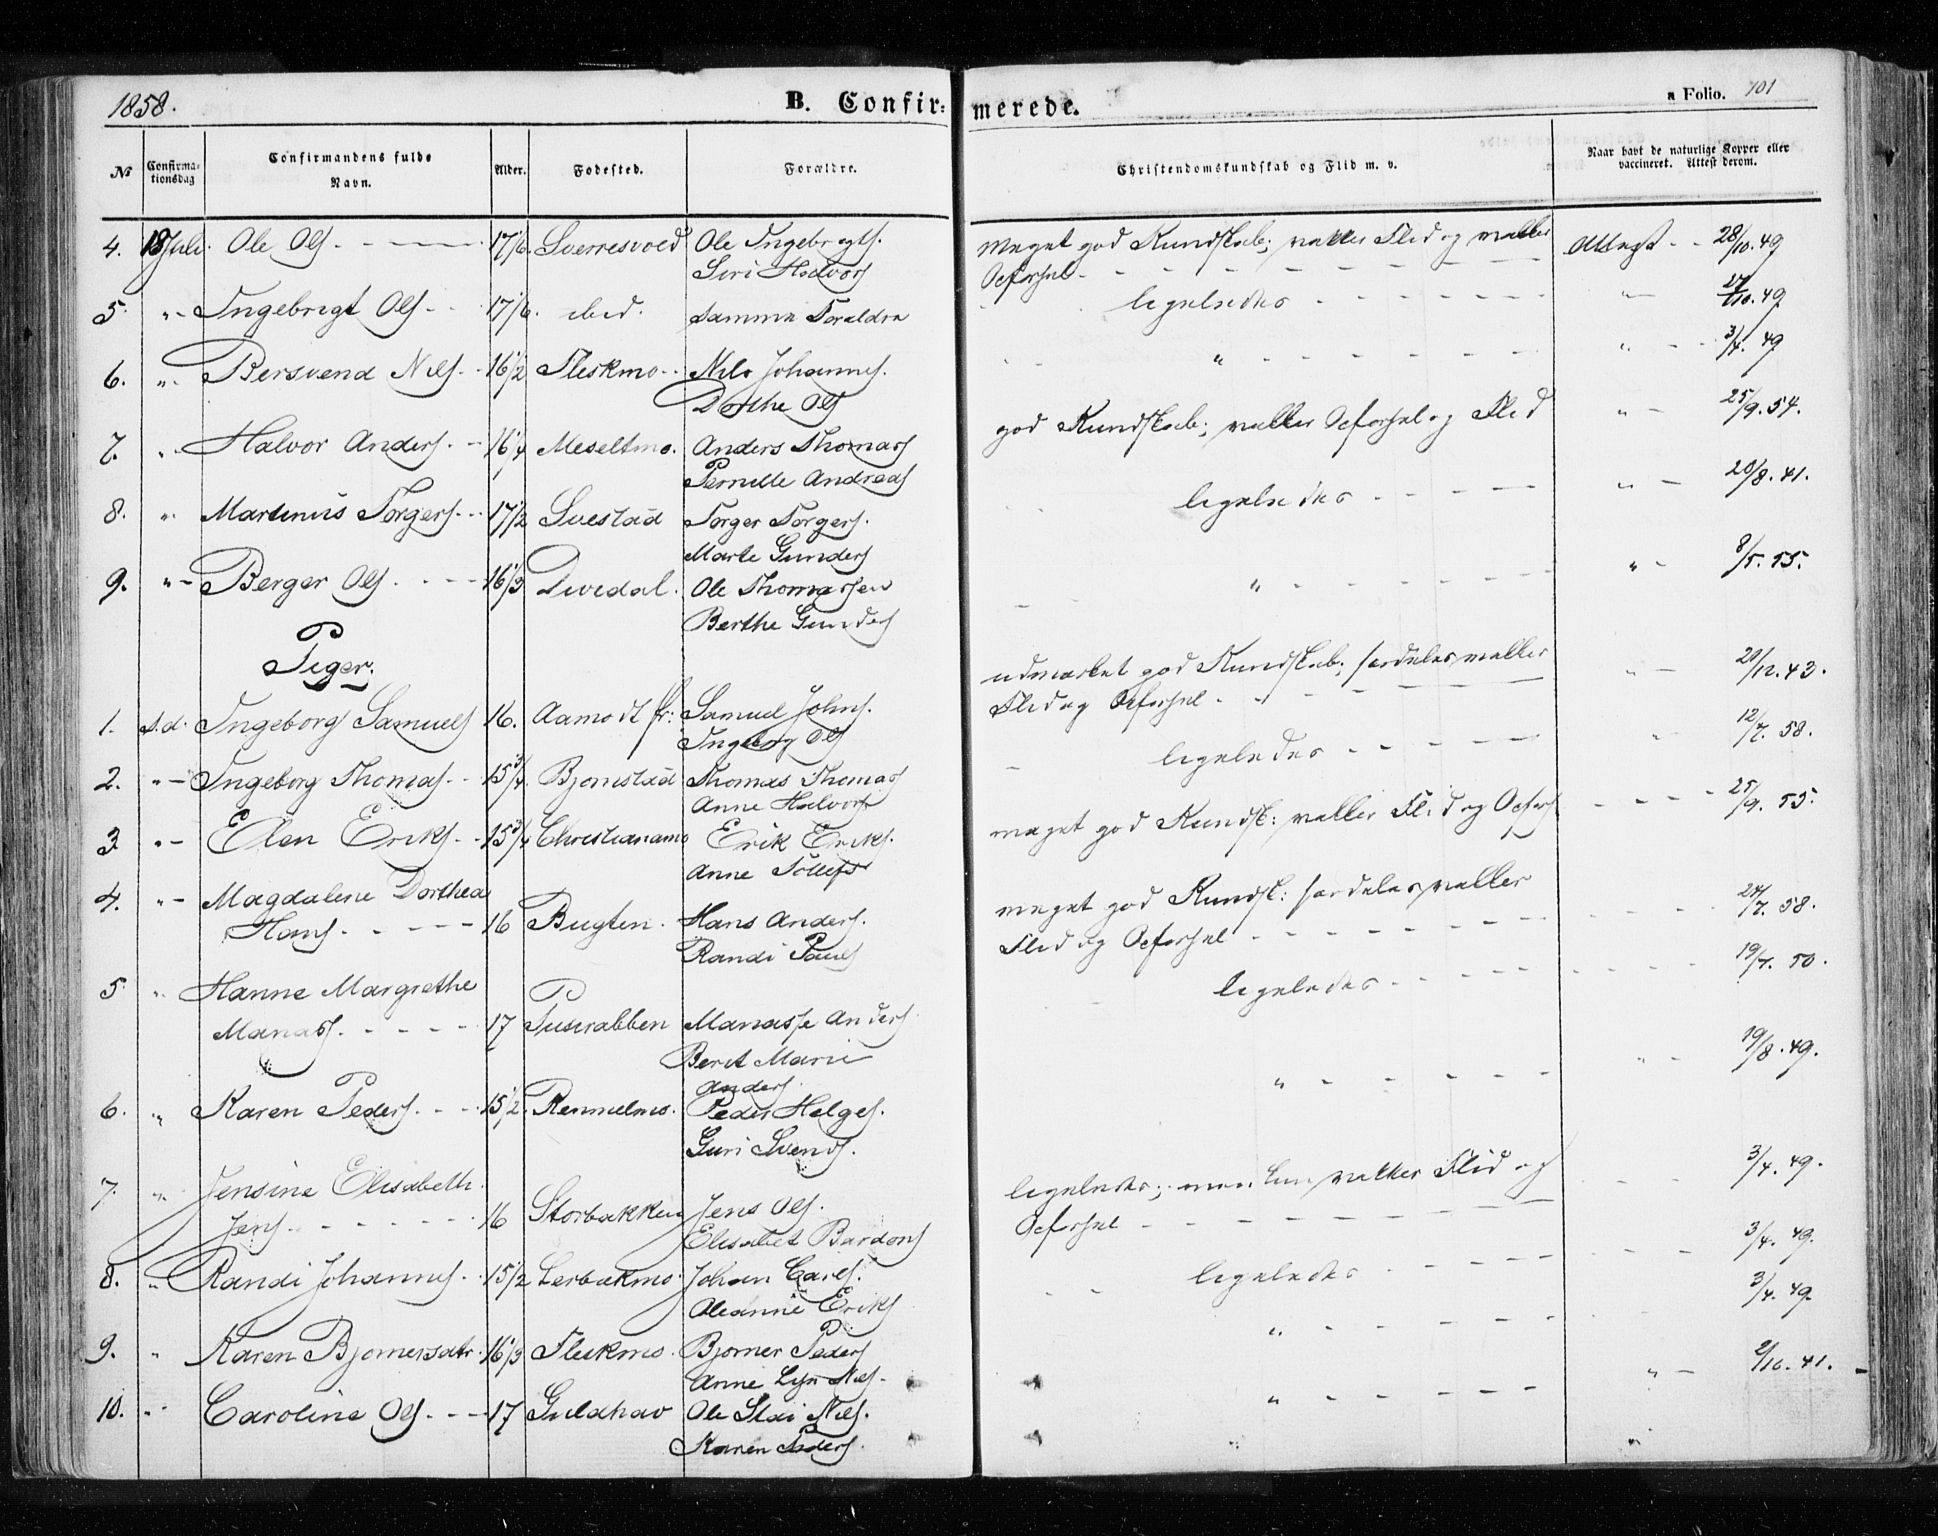 1858. B. Confirmerede. a Folio. 101
No Confirmationsdag Confirmandens fulde Navn. Alder. Fødested. Forældre. Christendomskundskab og Flid m. v. Naar havt de naturlige Kopper eller vaccineret. Attest derom.
4. 18 Juli. Ole Ols. 17 1/6. Sverresvold Ole Ingebrigts. Meget god Kundskab; vakker Flid og vakker Attest 28/10.49
Siri Halvors Opførsel
5. "- Ingebrigt Ols 17 1/6. ibid. Samme Forældre ligeledes "- 27/10.49
6. "- Bersvend Nils 16 1/2 Fleskmo Nils Johannes. " "- 3/4.49
Dorthe Ols
7. " Halvor Anders. 16 1/4 Meseltmo. Anders Thomas god Kundskab; vakker Opførsel og Flid "- 25/9.54.
Pernille Andreas
8. " Martinus Torgers. 17 1/2 Svestad Torger Torgers. ligeledes "- 20/8.41.
Marte Gunders
9. "- Berger Ols. 16 1/3 Divedal. Ole Thomassen " "- 8/5.55.
Berthe Gunders
Piger.
1. s.d. Ingeborg Samuels 16. Aamodt fr: Samuel Johns. udmærket god Kundskab; særdeles vakker "- 20/12.43.
Ingeborg Ols Flid og Opførsel
2. "- Ingeborg Thomas. 15 3/4. Bjørnstad Thomas Thomas ligeledes " 12/7.58.
Anne Halvors
3. "- Elen Eriks. 15 3/4 Christianamo Erik Eriks. meget god Kundsk: vakker Flid og Opførs 25/9.55.
Anne Tollefs
4. "- Magdalene Dorthea meget god Kundsk: særdeles vakker 27/7.58.
Hans. 16 Bugten. Hans Anders. Flid og Opførsel
Randi Pauls
5. " Hanne Margrethe ligeledes 19/7.50.
Manas. 17 Puserabben Manasse Anders
Berit Marie
Anders.
6. " Karen Peders. 15 1/2. Remmelmo. Peder Helges. " "- 19/8.49.
Guri Svends.
7. " Jensine Elisabeth. ligeledes; men kun vakker Flid og 3/4.49.
Jens. 16 Storbakken Jens Ols. Opførsel
Elisabet Bardons
8. "- Randi Johannes. 15 1/2 Lerbakmo. Johan Carls. ligeledes 3/4.49.
Oleanne Eriks
9. " Karen Bjørnersdtr. 16 1/3 Flukmo. Bjørner Peders " 3/4.49.
Anne Lyn Nils.
10. " Caroline Ols. 17 Guldhav Ole Stai Nils. " "- 2/10.41.
Karen Peders.